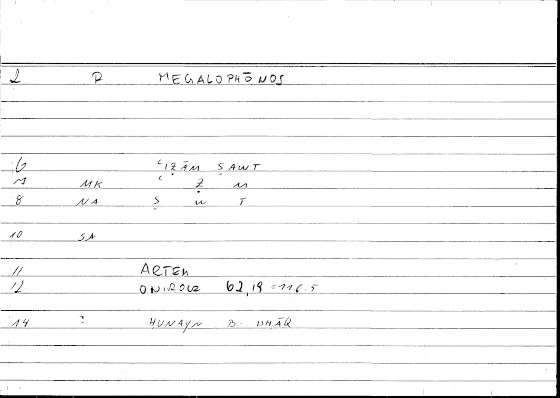 2 R MEGALOPHŌNOS
6 ʿIẒĀM ṢAWT
7 MK ʿ Ẓ M
8 NA Ṣ W T
10 SA
11 ARTEM
12 ONIROCR 62,19 = 116.5
14 : HUNAYN B.